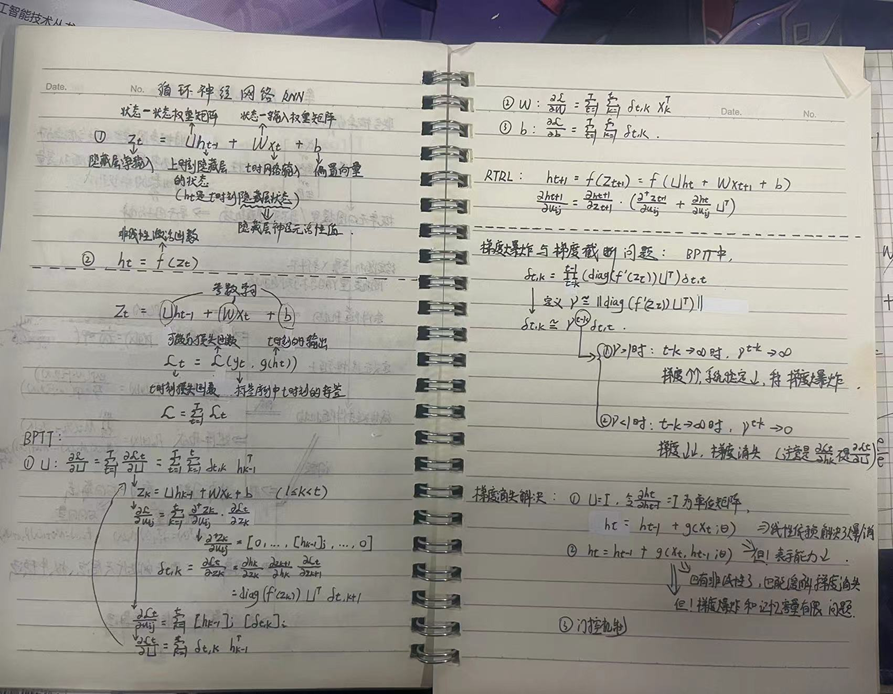 工智能技术丛书
Date.
No.
循环神经网络 RNN
状态-状态权重矩阵 状态-输入权重矩阵
① Zt = Uht-1 + Wxt + b
隐藏层净输入 上时刻隐藏层的状态 t时刻网络输入 偏置向量
(ht是t时刻隐藏层状态)
隐藏层神经元活性值.
非线性激活函数
② ht = f(Zt)
参数学习
Zt = Uht-1 + Wxt + b
可微分损失函数 t时刻的输出
ℒt = ℒ(yt, g(ht))
t时刻损失函数 标签序列中t时刻的标签
ℒ = Σ_{t=1}^{T} ℒt
BPTT:
① U: ∂ℒ/∂U = Σ_{t=1}^{T} ∂ℒt/∂U = Σ_{t=1}^{T} Σ_{k=1}^{t} δt,k h_{k-1}^T
Zk = Uhk-1 + Wxk + b (1≤k≤t)
∂ℒt/∂uij = Σ_{k=1}^{t} ∂⁺zk/∂uij · ∂ℒt/∂zk
∂⁺zk/∂uij = [0, ..., [hk-1]j, ..., 0]
δt,k = ∂ℒt/∂zk = ∂hk/∂zk ∂zk+1/∂hk ∂ℒt/∂zk+1
= diag(f'(zk)) U^T δt,k+1
∂ℒt/∂uij = Σ_{k=1}^{t} [hk-1]j [δt,k]i
∂ℒt/∂U = Σ_{k=1}^{t} δt,k h_{k-1}^T
② W: ∂ℒ/∂W = Σ_{t=1}^{T} Σ_{k=1}^{t} δt,k x_k^T
Date. No.
③ b: ∂ℒ/∂b = Σ_{t=1}^{T} Σ_{k=1}^{t} δt,k.
RTRL: ht+1 = f(Zt+1) = f(Uht + Wxt+1 + b)
∂ht+1/∂uij = ∂ht+1/∂zt+1 · (∂⁺zt+1/∂uij + ∂ht/∂uij U^T)
梯度爆炸与梯度截断问题: BPTT中,
δt,k = Π (diag(f'(zτ)) U^T) δt,t
定义 γ ≅ ||diag(f'(zτ)) U^T||
δt,k ≅ γ^{t-k} δt,t.
①γ>1时: t-k→∞时, γ^{t-k}→∞
梯度↑↑, 系统稳定↓, 称梯度爆炸.
②γ<1时: t-k→∞时, γ^{t-k}→0
梯度↓↓, 梯度消失
梯度消失解决: ① U=I, 令∂ht/∂ht-1=I为单位矩阵,
ht = ht-1 + g(xt;θ) ⇒线性依赖解决了爆/消
② ht = ht-1 + g(xt, ht-1;θ) 但!表示能力↓.
⇒既有非线性了, 也能缓解梯度消失
但!梯度爆炸和记忆容量有限问题.
③门控机制